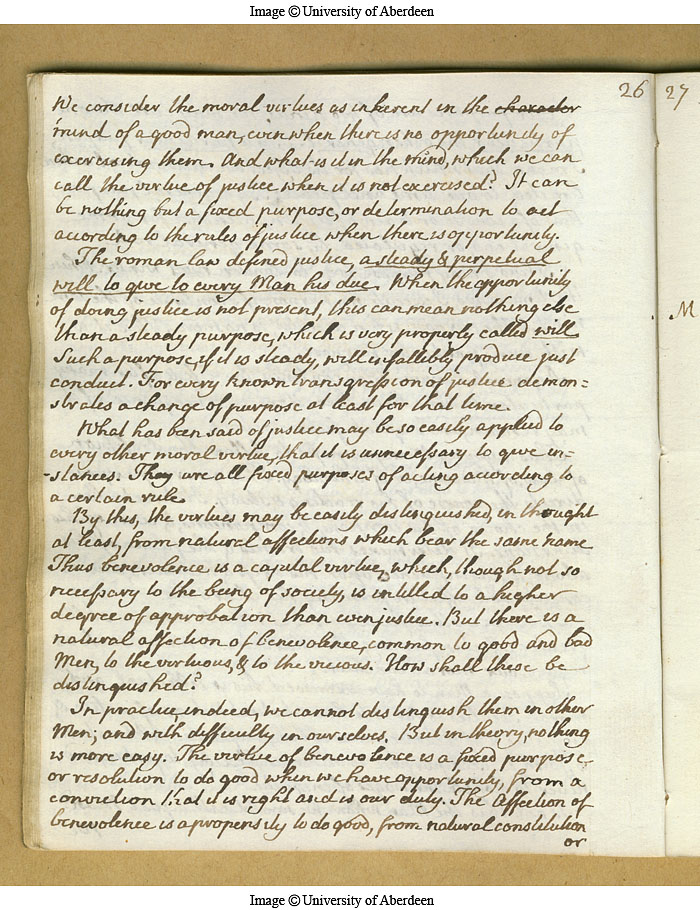 Image © University of Aberdeen
26
27
We consider the moral virtues as inherent in the character
mind of a good man, even when there is no opportunity of
exercising them. And what is it in the Mind, which we can
call the virtue of justice when it is not exercised? It can
be nothing but a fixed purpose, or determination to act
according to the rules of justice when there is opportunity.
The roman law defined justice, a steady & perpetual
will to give to every Man his due. When the opportunity
of doing justice is not present, this can mean nothing else
than a steady purpose, which is very properly called will
Such a purpose, if it is steady, will infallibly produce just
conduct. For every known transgression of justice demon=
strates a change of purpose at least for that time.
What has been said of justice may be so easily applied to
every other moral virtue, that it is unnecessary to give in-
-stances. They are all fixed purposes of acting according to
a certain rule
By this, the virtues may be easily distinguished, in thought
at least, from natural affections which bear the same name
Thus benevolence is a capital virtue, which, though not so
necessary to the being of society, is intitled to a higher
degree of approbation than even justice. But there is a
natural affection of benevolence, common to good and bad
Men, to the virtuous, & to the vicious. How shall these be
distinguished?
In practice, indeed, we cannot distinguish them in other
Men; and with difficulty in ourselves. But in theory, nothing
is more easy. The virtue of benevolence is a fixed purpose,
or resolution to do good when we have opportunity, from a
conviction that it is right and is our duty. The Affection of
benevolence is a propensity to do good, from natural constitution
or
M
Image © University of Aberdeen